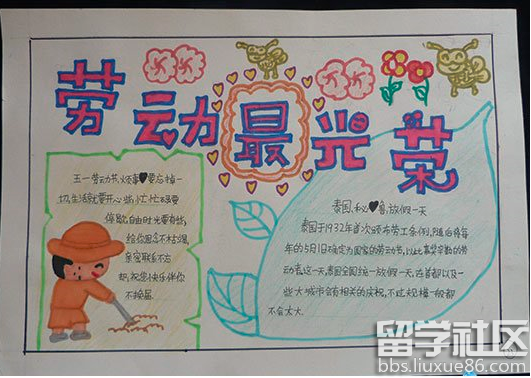 劳动最光荣
五一劳动节,烦事要忘掉一
切,生活就要开心些,忙忙碌要
停歇,自由时光要有些,
给你图念不枯燥,
亲密联系不方
却,祝您快乐伴你
不换届.
泰国,秘鲁,放假一天
泰国于1932年首次颁布劳工条例,随后将每
年的5月1日确定为国家的劳动节,以此嘉奖辛勤的劳
动者.这一天,泰国全国统一放假一天,在首都以及一
些大城市会有相关的庆祝,不过规模一般都
不会太大.
留学社区
bbs.liuxue86.com